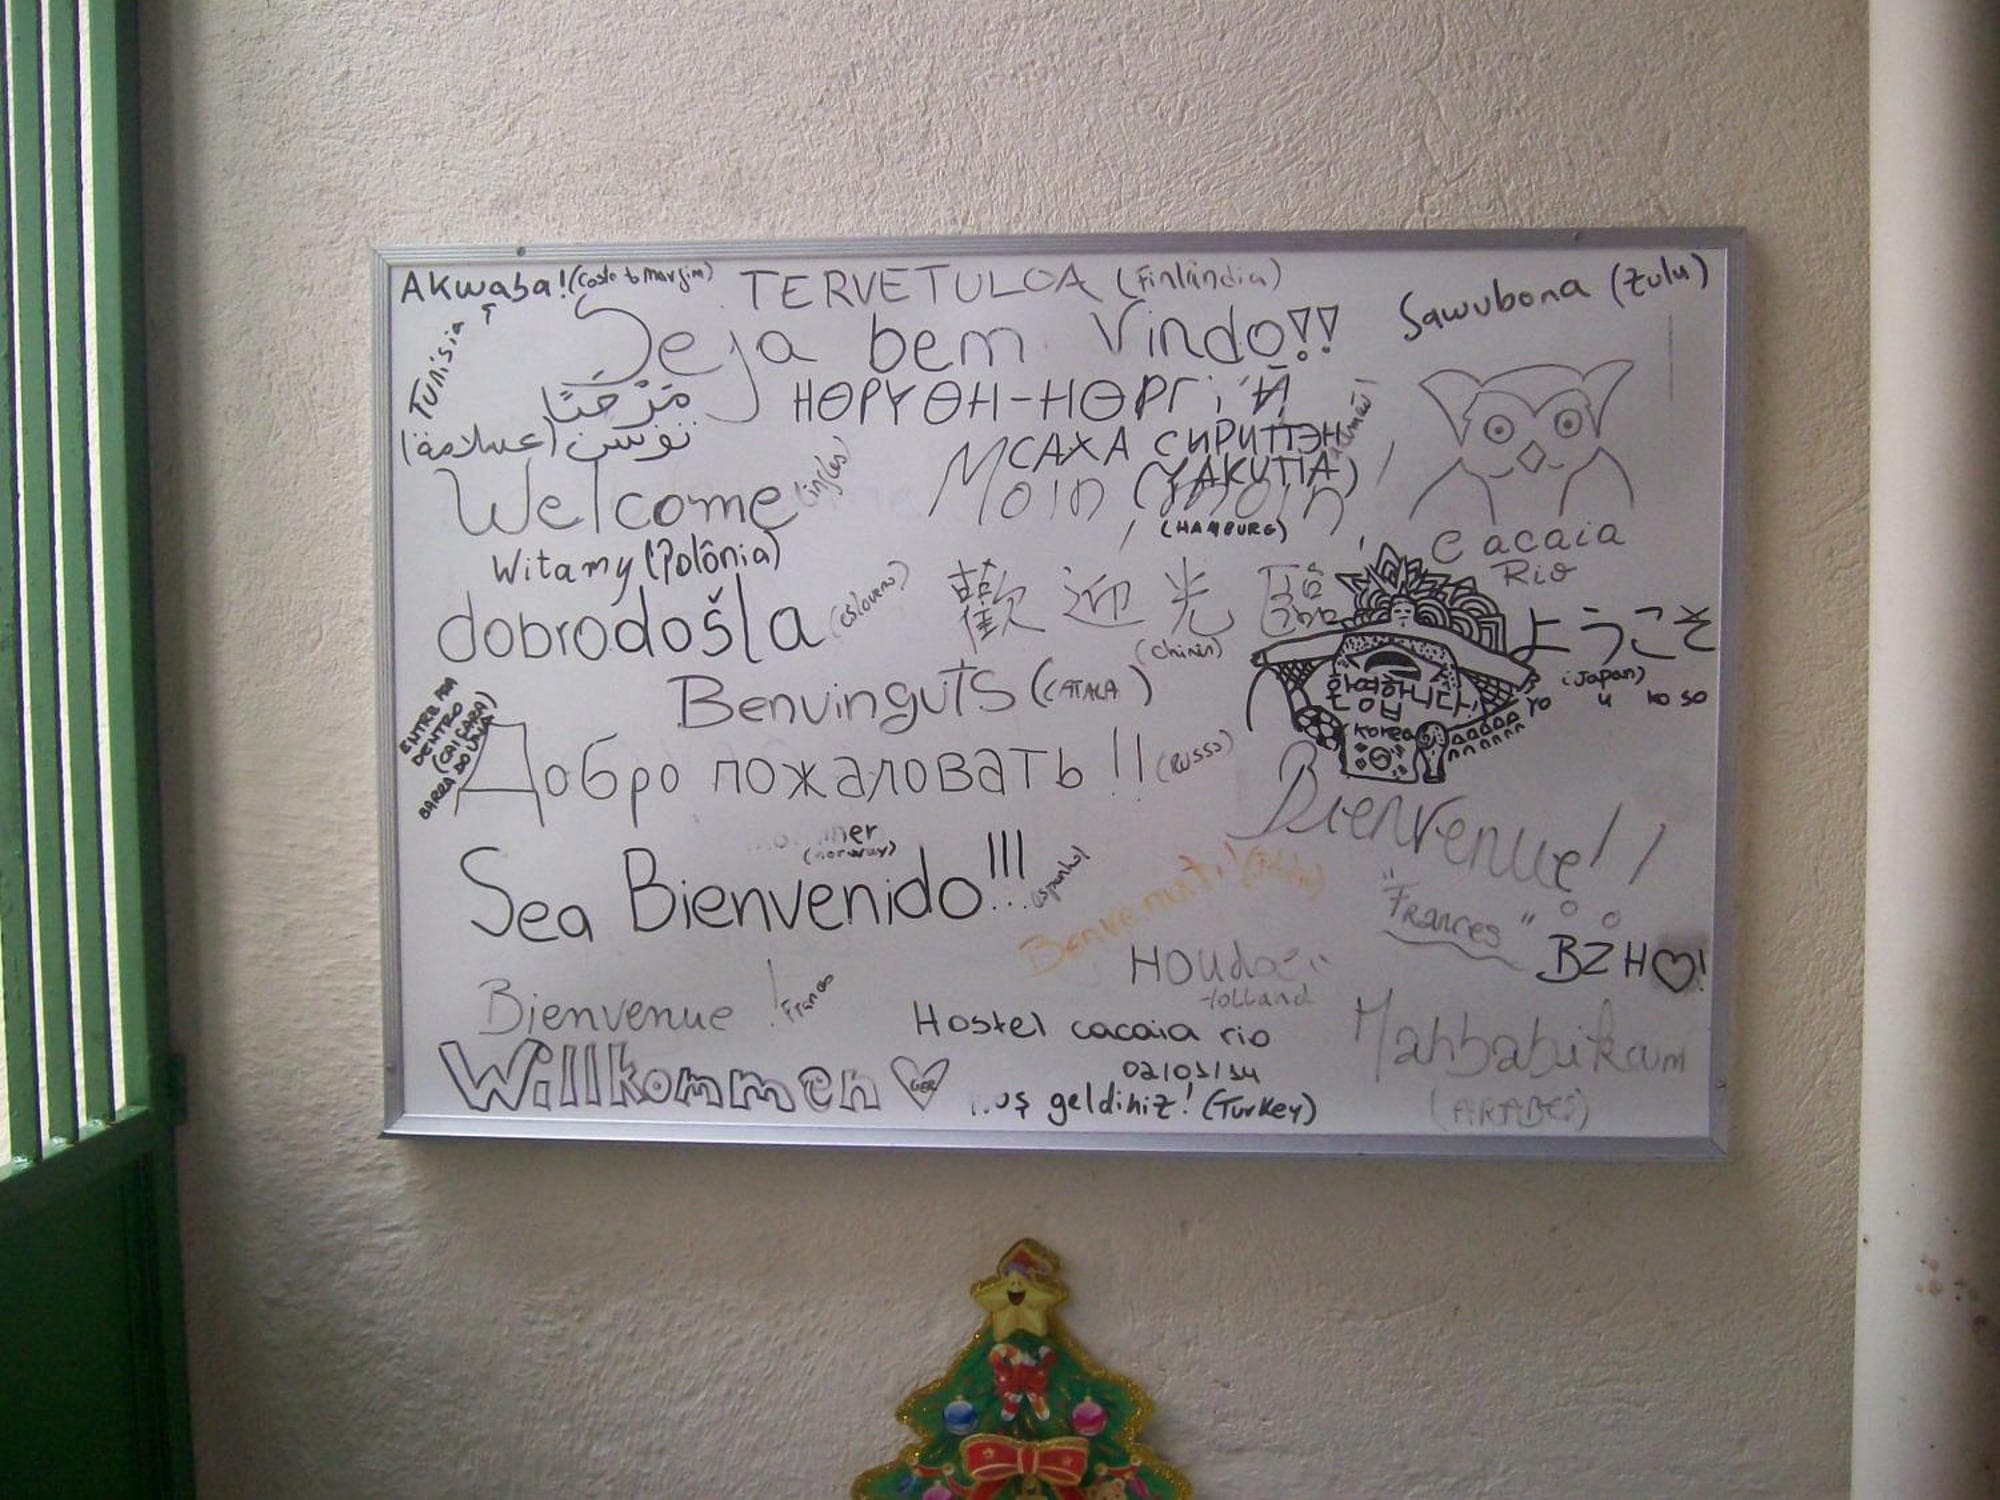 AKwaba! (Costa do Marfim)
TERVETULOA (Finlândia)
Sawubona (Zulu)
Tunisia
Seja bem Vindo!!
مَرْحَبًا
تونس (عسلامة)
НӨРҮӨН-НӨРГІЙ
САХА СИРИТТЭН
(YAKUTIA)
Welcome (inglês)
Moin moin!
(HAMBURG)
Witamy (Polônia)
Cacaia
Rio
dobrodošla (esloveno)
歡迎光臨
(chinês)
ようこそ
(Japan)
YO u ko so
환영합니다!
Korea
Benvinguts (CATALA)
ENTRE PRA
DENTRO
(CAIÇARA)
BARRA DO UNA
Добро пожаловать!! (RUSSO)
Bienvenue!!
"Frances"
(norway)
Sea Bienvenido!!! (espanhol)
Benvenuti!
BZH ♡!
Houdoe
Holland
Bienvenue! France
Hostel cacaia rio
02/01/14
Mahbabikum
(ARABES)
Willkommen GER
geldiniz! (Turkey)